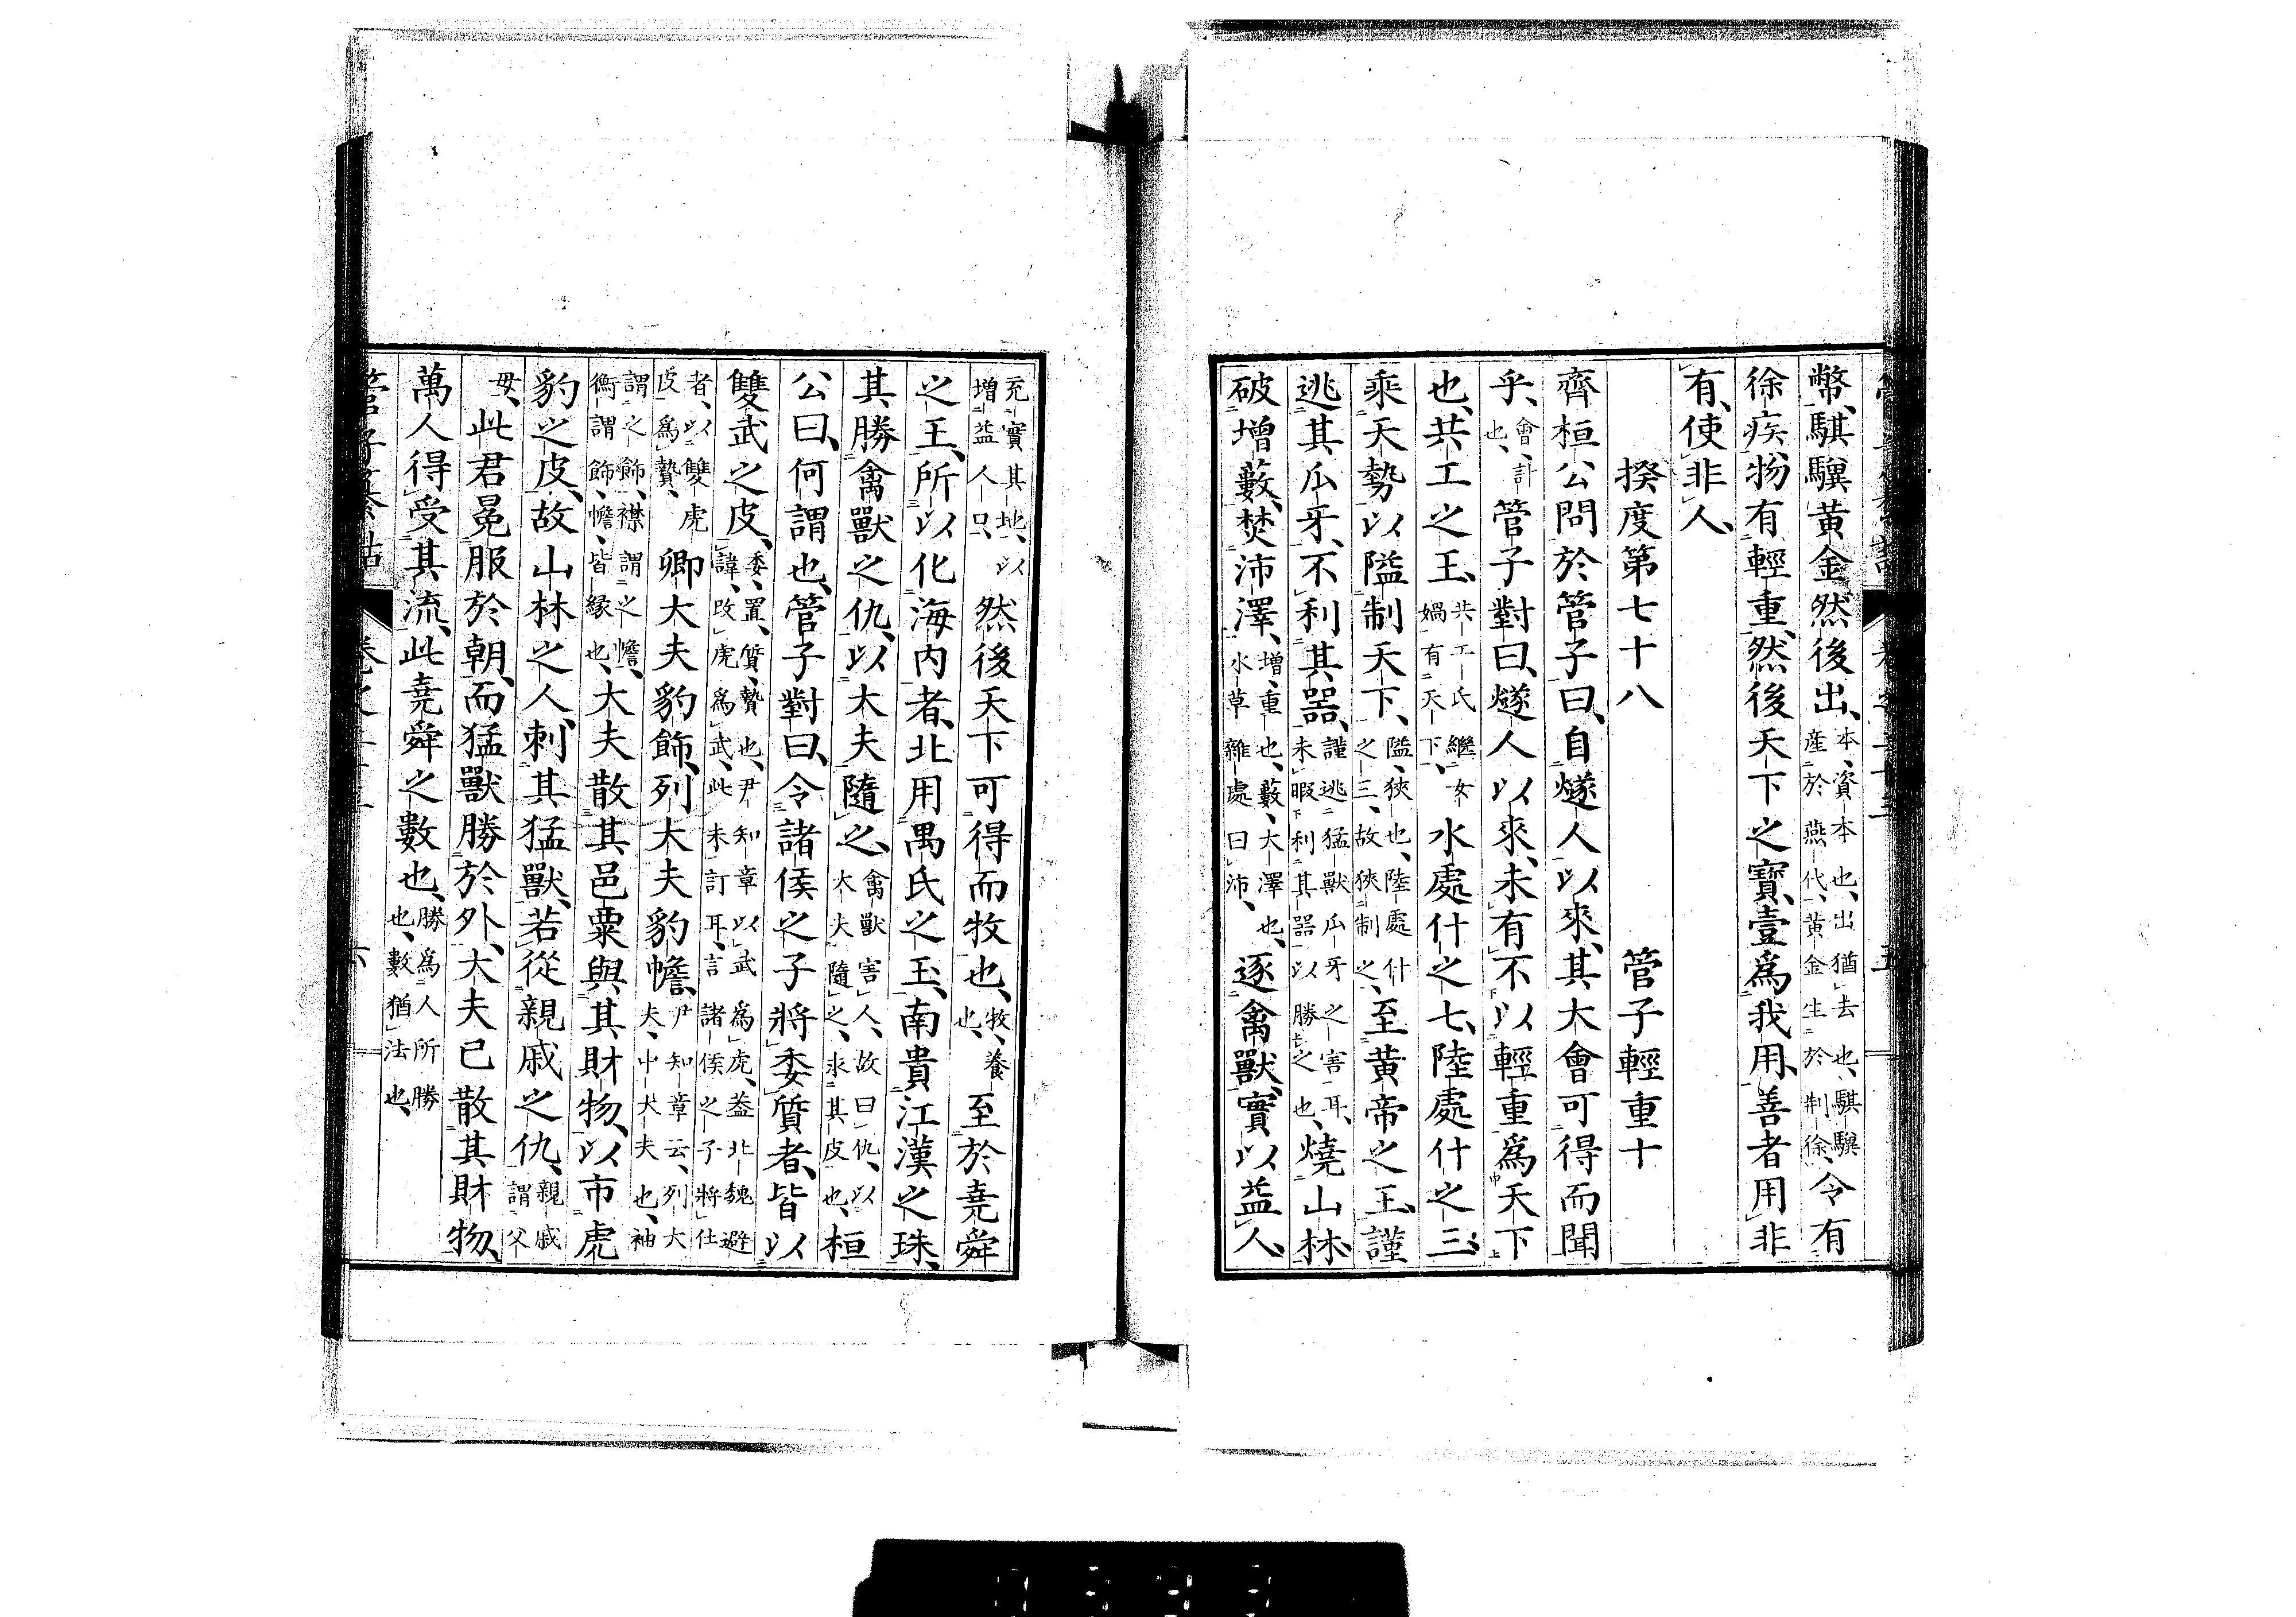 幣、騏驥黃金然後出、本、資本也、出猶去也、騏驥產於燕代、黃金生於荆徐、令有
徐疾、物有輕重、然後天下之寶、壹爲我用、善者用非
有、使非人、
揆度第七十八　管子輕重十
齊桓公問於管子曰、自燧人以來、其大會可得而聞
乎、會、計也、管子對曰、燧人以來、未有不以輕重爲天下
也、共工之王、共工氏繼女媧有天下、水處什之七、陸處什之三、
乘天勢以隘制天下、隘、狹也、陸處什之三、故狹制之、至黃帝之王、謹
逃其爪牙、不利其器、謹逃猛獸爪牙之害耳、未暇利其器以勝之也、燒山林、
破增藪、焚沛澤、增、重也、藪、大澤也、水草雜處曰沛、逐禽獸、實以益人、
充實其地、以增益人口、然後天下可得而牧也、牧、養也、至於堯舜
之王、所以化海內者、北用禺氏之玉、南貴江漢之珠、
其勝禽獸之仇、以大夫隨之、禽獸害人、故曰仇、以大夫隨之、求其皮也、桓
公曰、何謂也、管子對曰、令諸侯之子將委質者、皆以
雙武之皮、委、置、質、贄也、尹知章以武爲虎、蓋北魏避諱、改虎爲武、此未訂耳、言諸侯之子將仕
者、以雙虎皮爲贄、卿大夫豹飾、列大夫豹幨、尹知章云、列大夫、中大夫也、袖
謂之飾、襟謂之幨、衡謂飾、幨、皆緣也、大夫散其邑粟與其財物、以市虎
豹之皮、故山林之人、刺其猛獸、若從親戚之仇、親戚謂父
母、此君冕服於朝、而猛獸勝於外、大夫已散其財物、
萬人得受其流、此堯舜之數也、勝爲人所勝也、數猶法也、
管子纂詁　卷之二十三　六